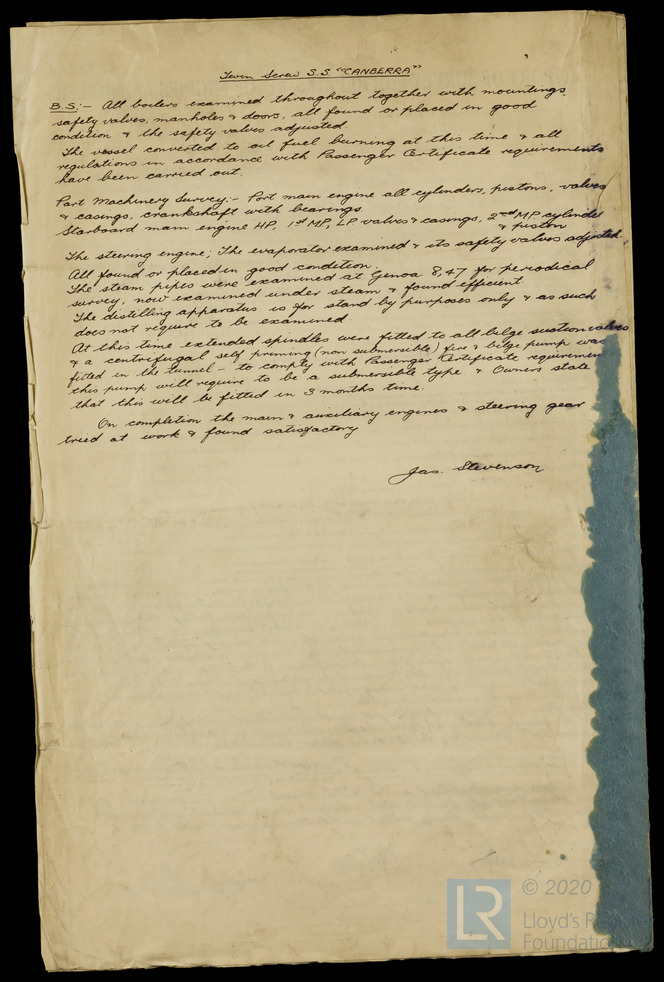 Twin Screw S.S. "CANBERRA"
B.S:- All boilers examined throughout together with mountings,
safety valves, manholes & doors, all found or placed in good
condition & the safety valves adjusted
The vessel converted to oil fuel burning at this time & all
regulations in accordance with Passenger Certificate requirements
have been carried out.
Part Machinery Survey:- Port main engine all cylinders, pistons, valves
& casings, crankshaft with bearings
Starboard main engine HP, 1st MP, LP valves & casings, 2nd MP cylinder
& piston
The steering engine; The evaporator examined & its safety valves adjusted.
All found or placed in good condition.
The steam pipes were examined at Genoa 8,47 for periodical
survey, now examined under steam & found efficient.
The distilling apparatus is for stand by purposes only & as such
does not require to be examined
At this time extended spindles were fitted to all bilge suction valves
& a centrifugal self priming (non submersible) fire & bilge pump was
fitted in the tunnel - to comply with Passenger Certificate requiremen
this pump will require to be a submersible type & Owners state
that this will be fitted in 3 months time.
On completion the main & auxiliary engines & steering gear
tried at work & found satisfactory
Jas. Stevenson
LR
© 2020
Lloyd's Register
Foundation